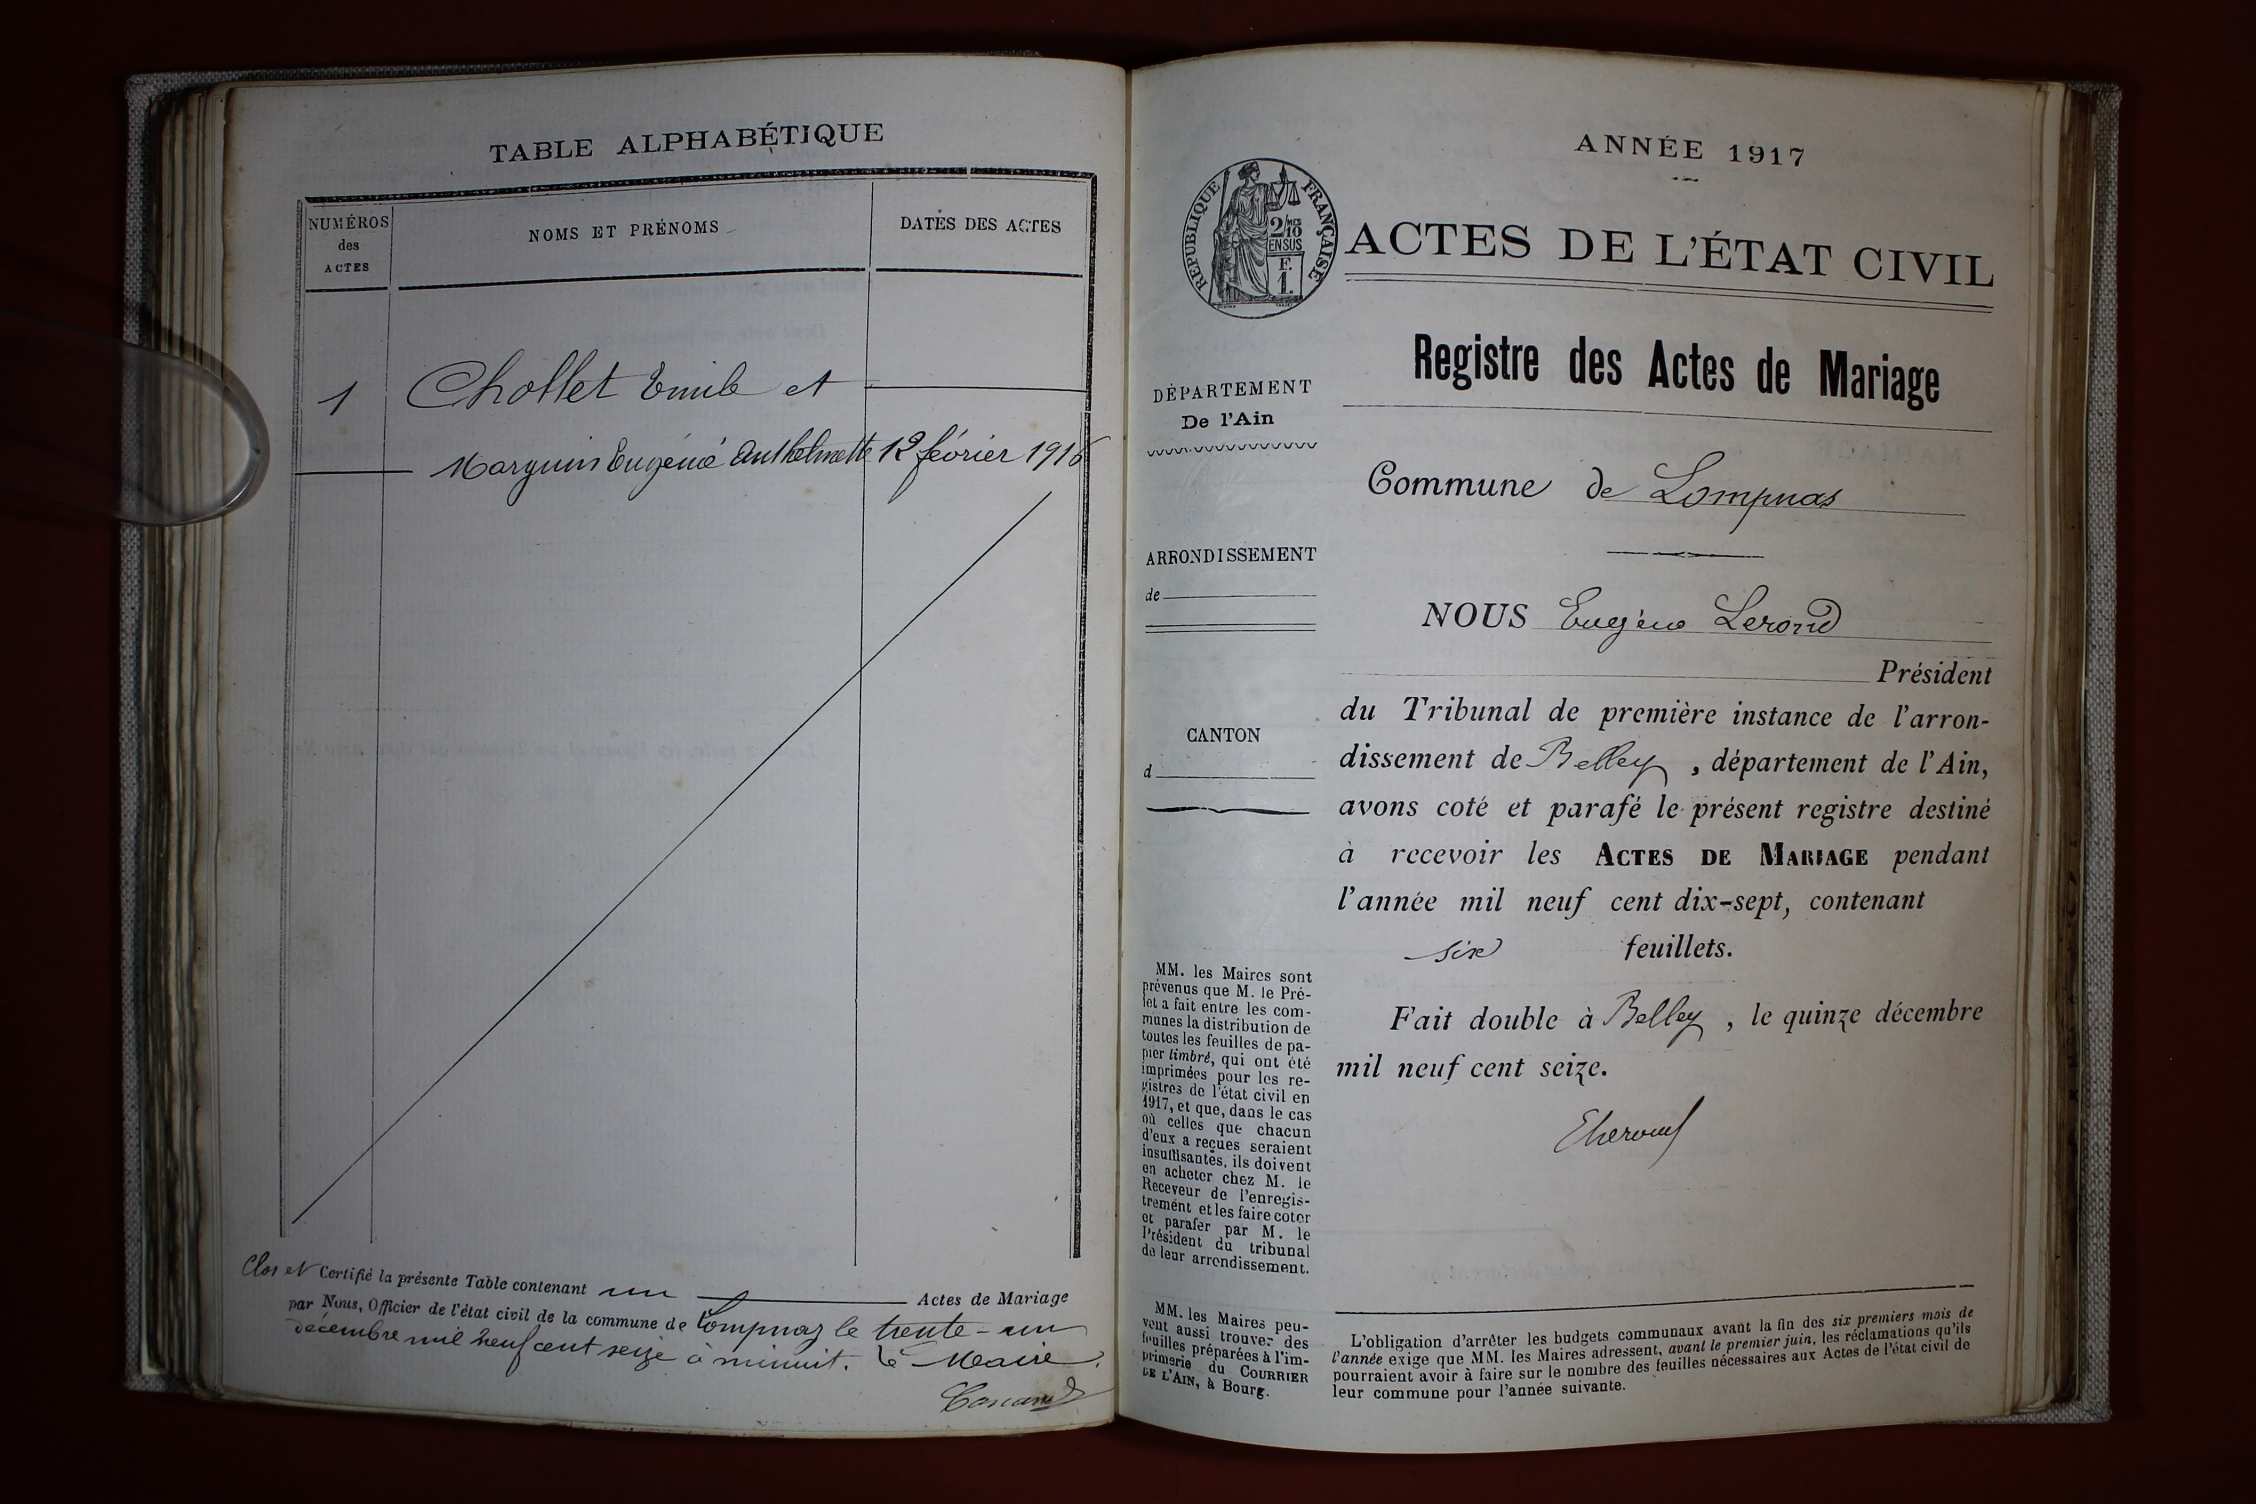 TABLE ALPHABÉTIQUE
NUMÉROS
des
ACTES
NOMS ET PRÉNOMS
DATES DES ACTES
1
Chollet Emile et
Marguin Eugénie Anthelmette 12 février 1916
Clos et Certifié la présente Table contenant un Actes de Mariage
par Nous, Officier de l'état civil de la commune de Lompnas le trente-un
décembre mil neuf cent seize à minuit. Le Maire,
ANNÉE 1917
RÉPUBLIQUE FRANÇAISE
2/10
EN SUS
F.
1.
ACTES DE L'ÉTAT CIVIL
Registre des Actes de Mariage
DÉPARTEMENT
De l'Ain
Commune de Lompnas
ARRONDISSEMENT
de
NOUS Eugène Lerond
Président
du Tribunal de première instance de l'arron-
CANTON
d
dissement de Belley, département de l'Ain,
avons coté et parafé le présent registre destiné
à recevoir les ACTES DE MARIAGE pendant
l'année mil neuf cent dix-sept, contenant
six feuillets.
Fait double à Belley, le quinze décembre
mil neuf cent seize.
ELerond
MM. les Maires sont
prévenus que M. le Pré-
fet a fait entre les com-
munes la distribution de
toutes les feuilles de pa-
pier timbré, qui ont été
imprimées pour les re-
gistres de l'état civil en
1917, et que, dans le cas
où celles que chacun
d'eux a reçues seraient
insuffisantes, ils doivent
en acheter chez M. le
Receveur de l'enregis-
trement et les faire coter
et parafer par M. le
Président du tribunal
de leur arrondissement.
MM. les Maires peu-
vent aussi trouver des
feuilles préparées à l'im-
primerie du COURRIER
DE L'AIN, à Bourg.
L'obligation d'arrêter les budgets communaux avant la fin des six premiers mois de
l'année exige que MM. les Maires adressent, avant le premier juin, les réclamations qu'ils
pourraient avoir à faire sur le nombre des feuilles nécessaires aux Actes de l'état civil de
leur commune pour l'année suivante.